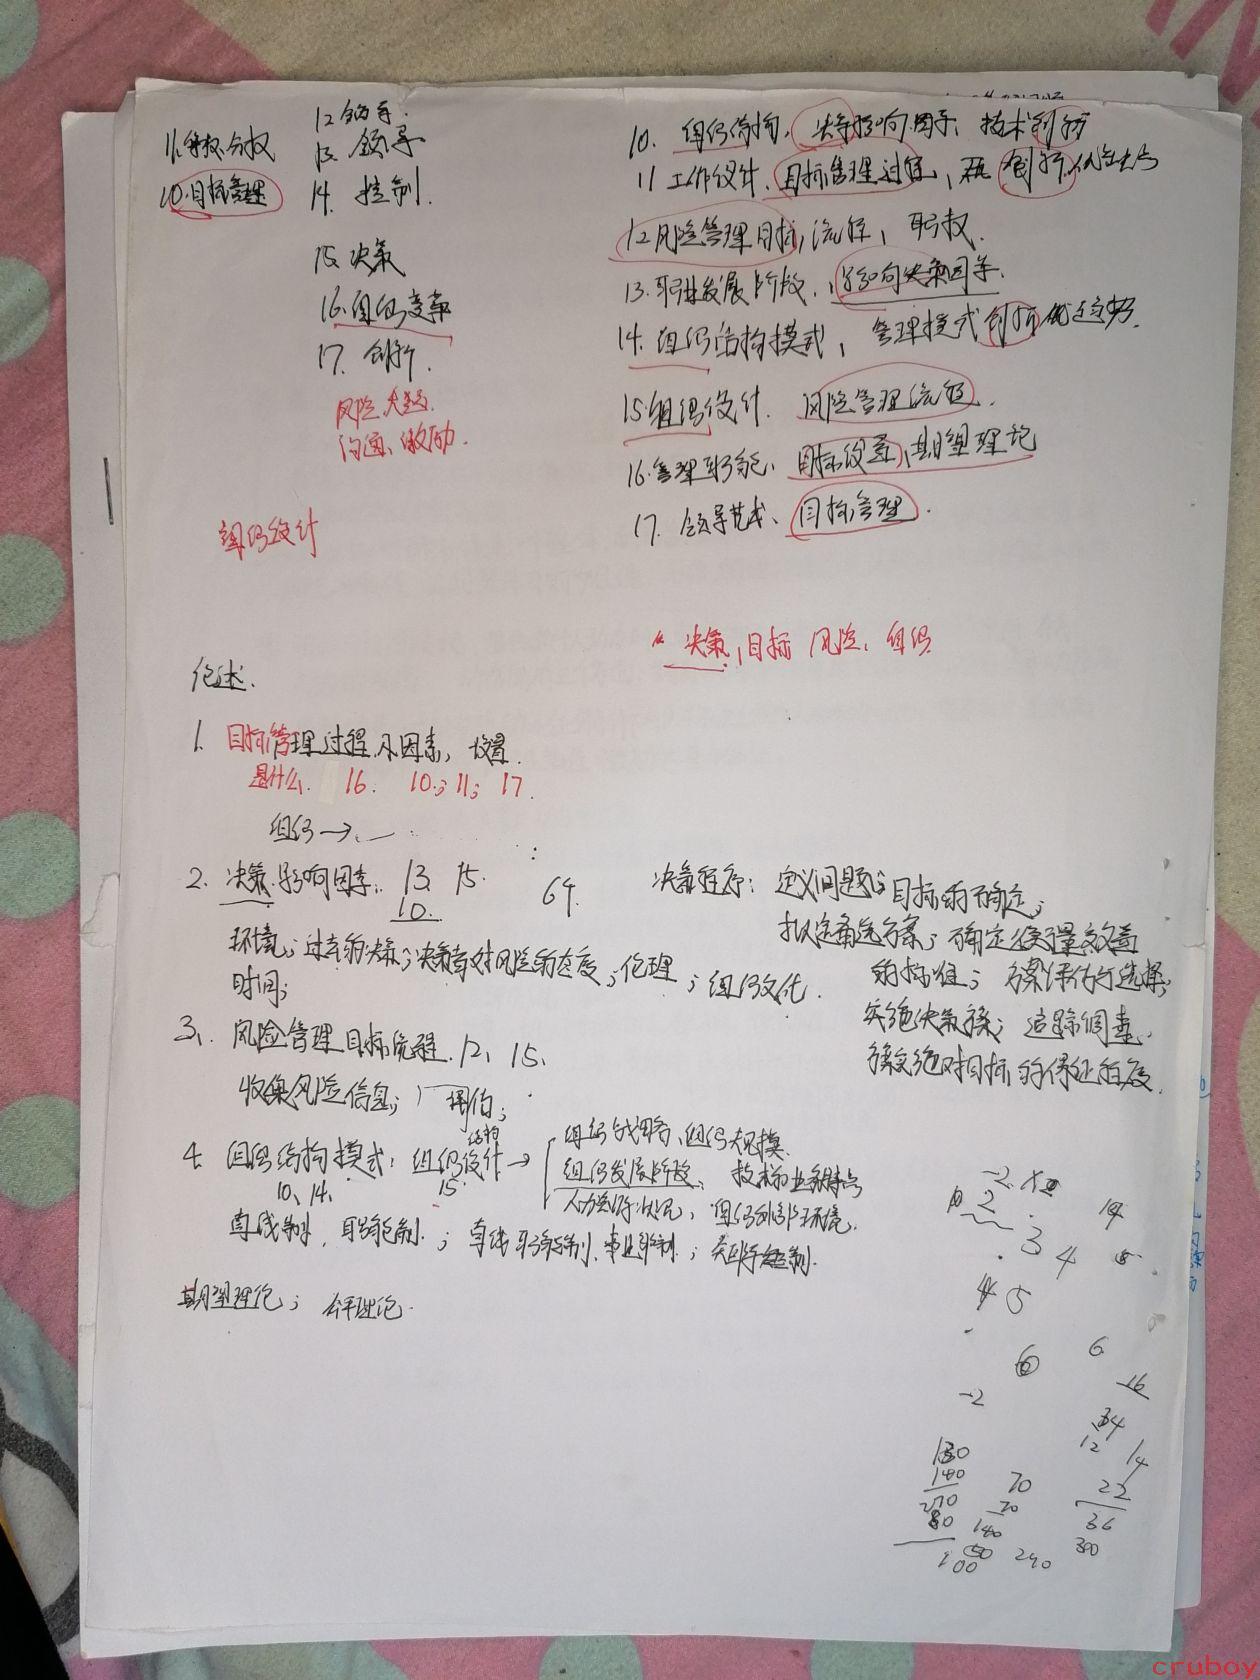 11.集权、分权
10.目标管理
12 领导.
13. 领导
14. 控制.
15. 决策
16.组织变革
17. 创新.
风险、决策.
沟通、激励.
组织设计
10. 组织结构, 决策影响因素, 技术创新
11 工作设计、目标管理过程, 创新
12风险管理目标,流程, 职权.
13.职业发展阶段、影响决策因素.
14.组织结构模式, 管理模式创新
15.组织设计. 风险管理流程.
16.管理职能、目标设置、期望理论
17. 领导艺术、目标管理.
决策,目标 风险、组织
论述.
1. 目标管理过程 因素, 设置.
是什么. 16. 10.; 11; 17.
组织→
2. 决策影响因素. 13. 15.
10.
64.
环境;过去的决策;决策者对风险的态度;伦理;组织文化.
时间;
决策程序: 定义问题;目标的确定;
拟定备选方案;确定衡量效益
的标准; 方案评估与选择;
实施决策方案; 追踪调查.
方案实施对目标的保证程度.
3、风险管理目标流程.12、15、
收集风险信息; 评估;
4. 组织结构模式: 组织结构设计→
10、14、
15.
组织战略、组织规模.
组织发展阶段、技术和业务特点
人力资源状况, 组织外部环境.
直线制、职能制.;直线职能制、事业部制;矩阵制.
期望理论; 公平理论.
-2.
2
3
4
14
5
6
6
-16
-2
34
12
14
130
140
270
80
100
70
70
140
240
22
36
300
cruboy